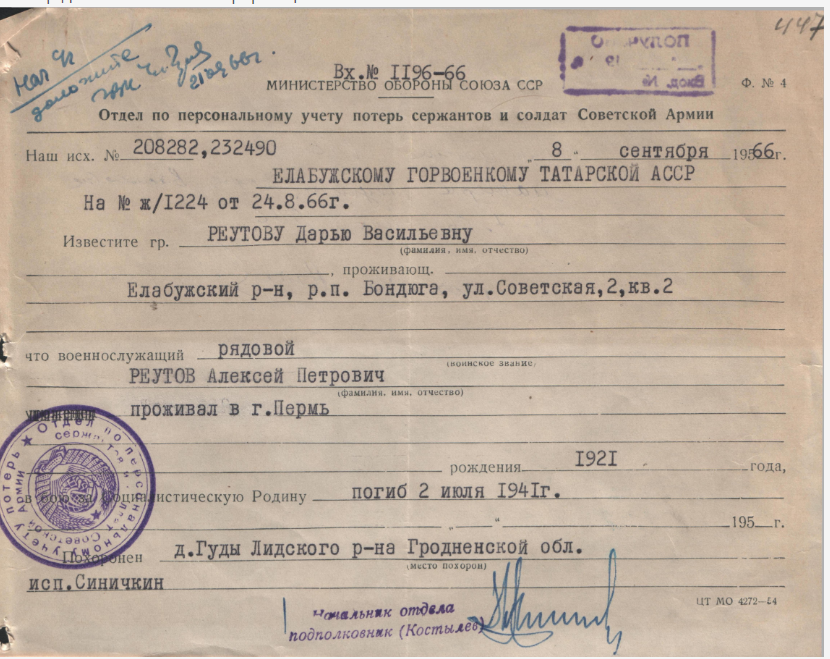 447
Нач ч
доложите
21.09.66г.
Вх.№ II96-66
МИНИСТЕРСТВО ОБОРОНЫ СОЮЗА ССР
ПОЛУЧЕНО
19
Вход. №
Ф. № 4
Отдел по персональному учету потерь сержантов и солдат Советской Армии
Наш исх. № 208282,232490 „ 8 " сентября 19566г.
ЕЛАБУЖСКОМУ ГОРВОЕНКОМУ ТАТАРСКОЙ АССР
На № ж/I224 от 24.8.66г.
Известите гр. РЕУТОВУ Дарью Васильевну
(фамилия, имя, отчество)
, проживающ.
Елабужский р-н, р.п. Бондюга, ул.Советская,2,кв.2
что военнослужащий рядовой
(воинское звание)
РЕУТОВ Алексей Петрович
(фамилия, имя, отчество)
проживал в г.Пермь
рождения I92I года,
в бою за Социалистическую Родину погиб 2 июля I94Iг.
„ " 195 г.
Похоронен д.Гуды Лидского р-на Гродненской обл.
(место похорон)
исп.Синичкин
Отдел по персональному учету потерь
сержантов и солдат Советской Армии
Начальник отдела
подполковник (Костылев)
ЦТ МО 4272—54